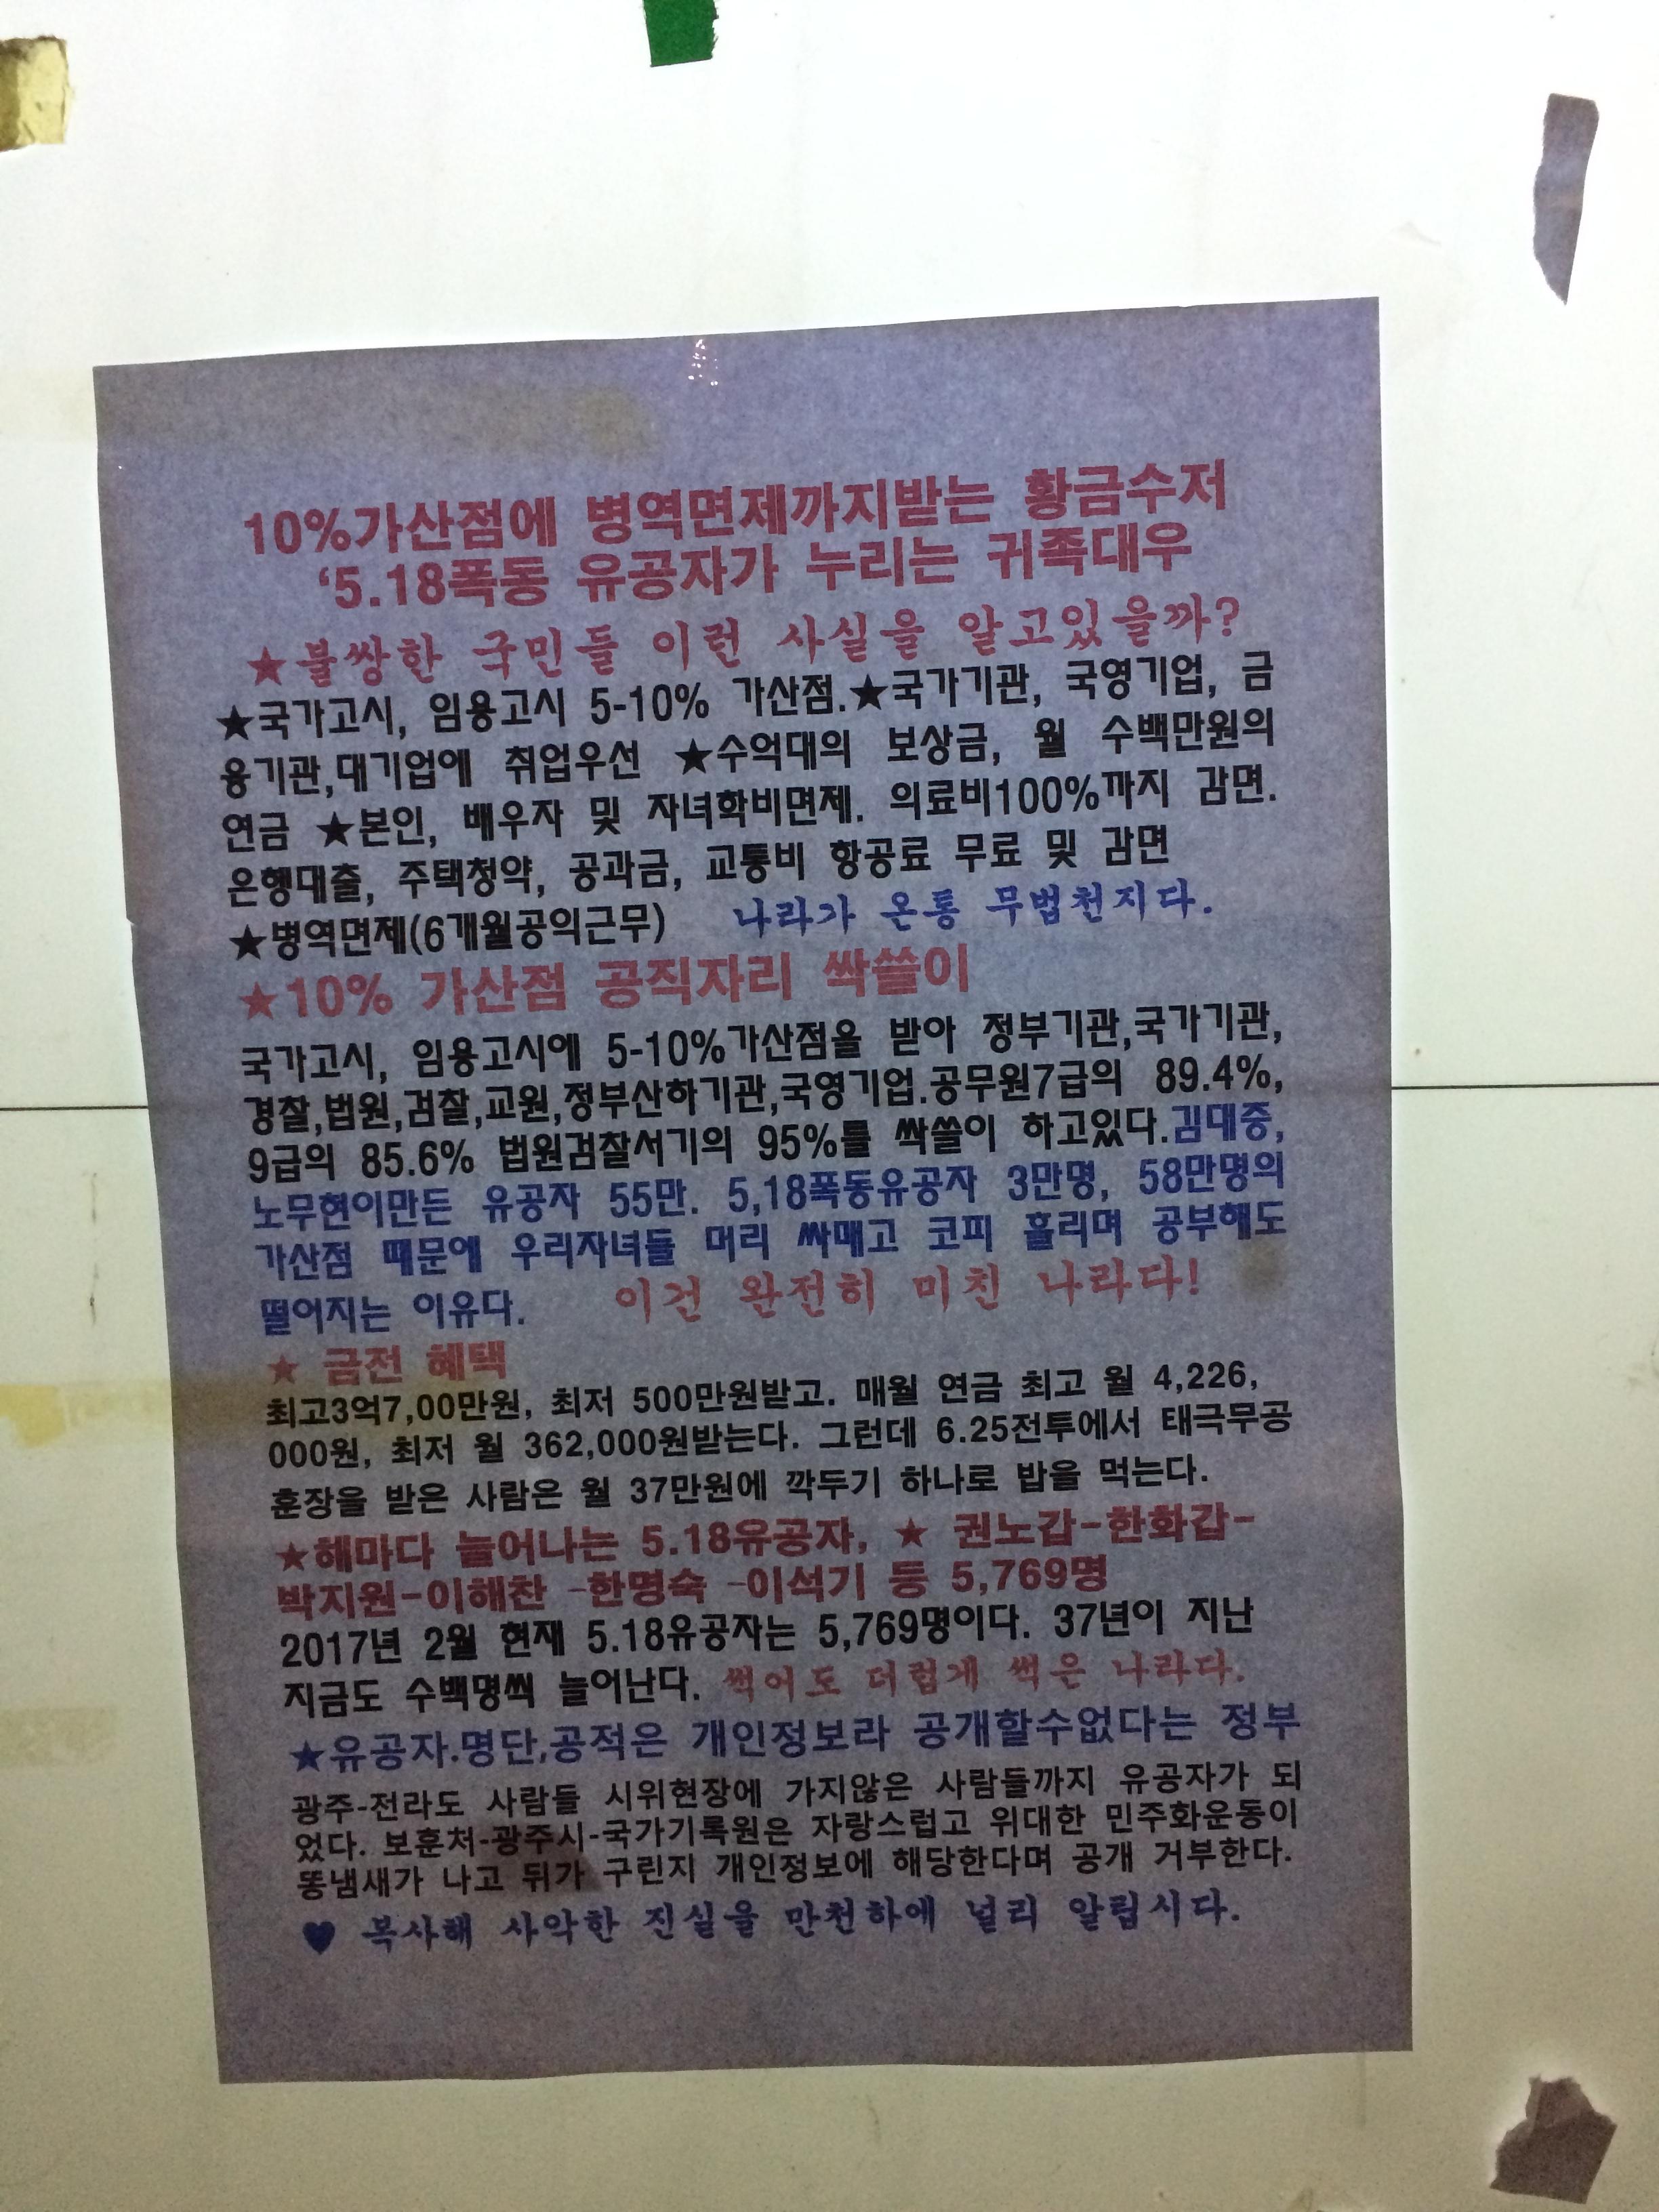 10%가산점에 병역면제까지받는 황금수저
‘5.18폭동 유공자가 누리는 귀족대우
★불쌍한 국민들 이런 사실을 알고있을까?
★국가고시, 임용고시 5-10% 가산점.★국가기관, 국영기업, 금
융기관,대기업에 취업우선 ★수억대의 보상금, 월 수백만원의
연금 ★본인, 배우자 및 자녀학비면제. 의료비100%까지 감면.
은행대출, 주택청약, 공과금, 교통비 항공료 무료 및 감면
★병역면제(6개월공익근무) 나라가 온통 무법천지다.
★10% 가산점 공직자리 싹쓸이
국가고시, 임용고시에 5-10%가산점을 받아 정부기관,국가기관,
경찰,법원,검찰,교원,정부산하기관,국영기업.공무원7급의 89.4%,
9급의 85.6% 법원검찰서기의 95%를 싹쓸이 하고있다.김대중,
노무현이만든 유공자 55만. 5,18폭동유공자 3만명, 58만명의
가산점 때문에 우리자녀들 머리 싸매고 코피 흘리며 공부해도
떨어지는 이유다. 이건 완전히 미친 나라다!
★ 금전 혜택
최고3억7,00만원, 최저 500만원받고. 매월 연금 최고 월 4,226,
000원, 최저 월 362,000원받는다. 그런데 6.25전투에서 태극무공
훈장을 받은 사람은 월 37만원에 깍두기 하나로 밥을 먹는다.
★해마다 늘어나는 5.18유공자, ★ 권노갑-한화갑-
박지원-이해찬 -한명숙 -이석기 등 5,769명
2017년 2월 현재 5.18유공자는 5,769명이다. 37년이 지난
지금도 수백명씩 늘어난다. 썩어도 더럽게 썩은 나라다.
★유공자.명단,공적은 개인정보라 공개할수없다는 정부
광주-전라도 사람들 시위현장에 가지않은 사람들까지 유공자가 되
었다. 보훈처-광주시-국가기록원은 자랑스럽고 위대한 민주화운동이
똥냄새가 나고 뒤가 구린지 개인정보에 해당한다며 공개 거부한다.
♥ 복사해 사악한 진실을 만천하에 널리 알립시다.